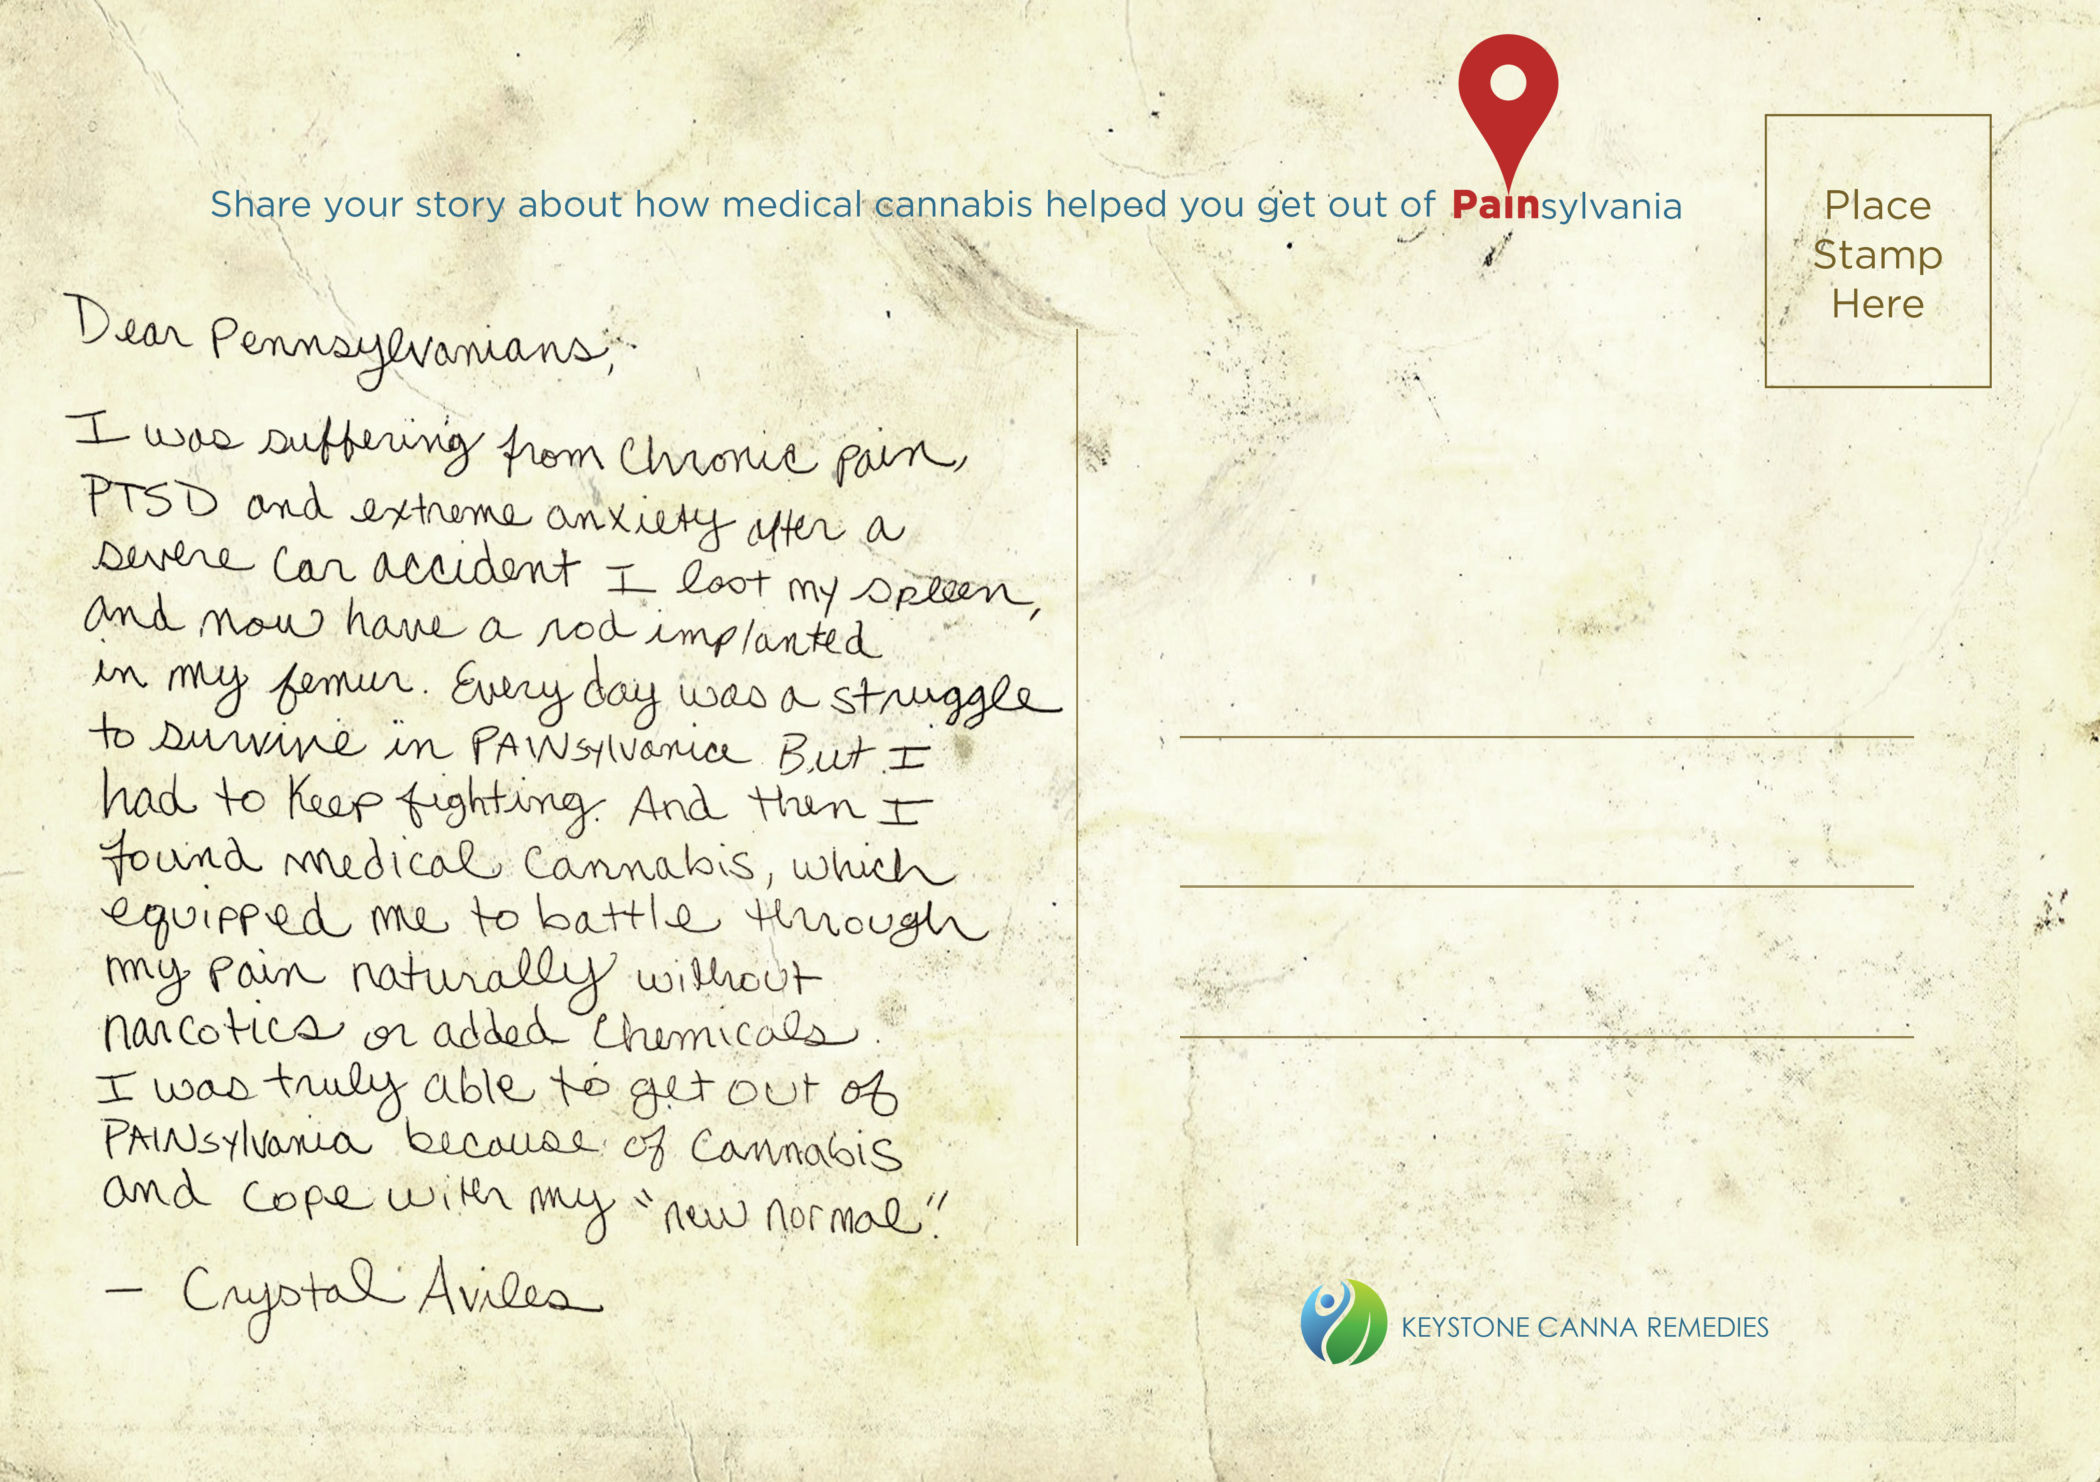 Share your story about how medical cannabis helped you get out of Painsylvania
Place
Stamp
Here
Dear Pennsylvanians,
I was suffering from Chronic pain,
PTSD and extreme anxiety after a
severe car accident I lost my spleen,
and now have a rod implanted
in my femur. Every day was a struggle
to survive in PAINsylvania But I
had to keep fighting. And then I
found medical cannabis, which
equipped me to battle through
my pain naturally without
narcotics or added chemicals.
I was truly able to get out of
PAINsylvania because of cannabis
and cope with my "new normal".
- Crystal Aviles
KEYSTONE CANNA REMEDIES